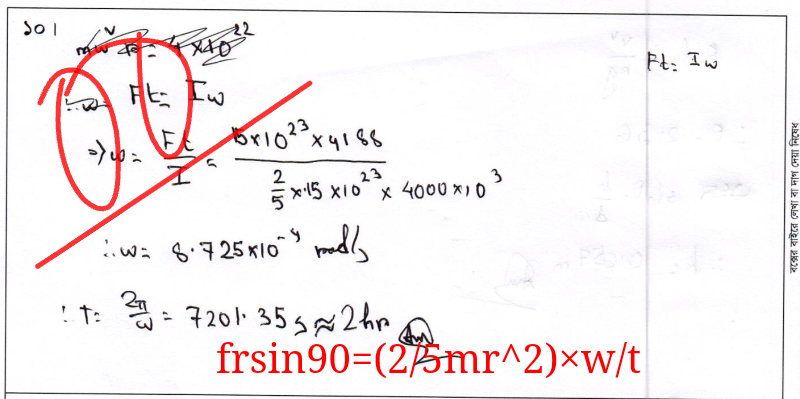 ১০।
Ft = Iw
Ft = Iw
⇒ w = Ft/I = 15×10^23×4188 / (2/5 ×·15×10^23 × 4000×10^3)
∴ w = 8.725×10^-4 rad/s
∴ T = 2π/w = 7201.35 s ≈ 2 hr
Ans
frsin90=(2/5mr^2)×w/t
বক্সের বাইরে লেখা বা দাগ দেয়া নিষেধ